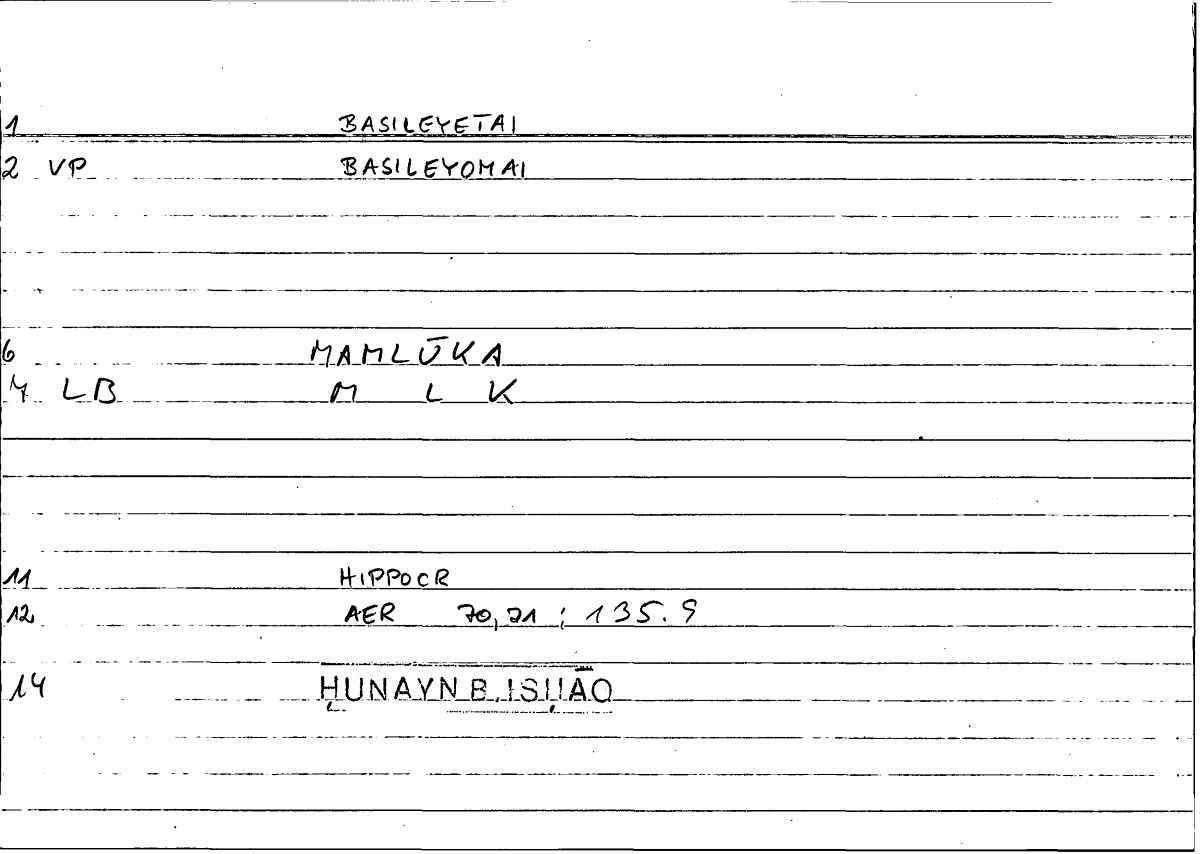 1 BASILEYETAI
2 VP BASILEYOMAI
6 MAMLŪKA
7 LB M L K
11 HIPPOCR
12 AER 70,21 ; 135.9
14 ḤUNAYN B. ISḤĀQ